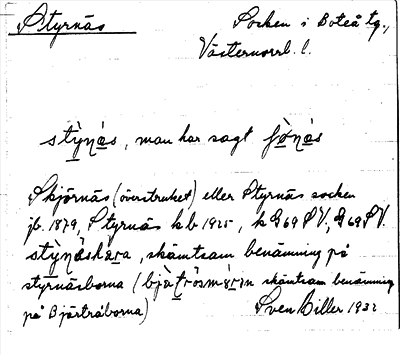 Styrnäs
Socken i Boteå tg.,
Västernorrl. l.
stỳnás, man har sagt
Skjörnäs (överstruket) eller Styrnäs socken
jb. 1879, Styrnäs kb 1925, k G69 SV, G69 SV.
skämtsam benämning på
styrnäsborna ( skämtsam benämning
på Björtråborna) Sven Biller 1932